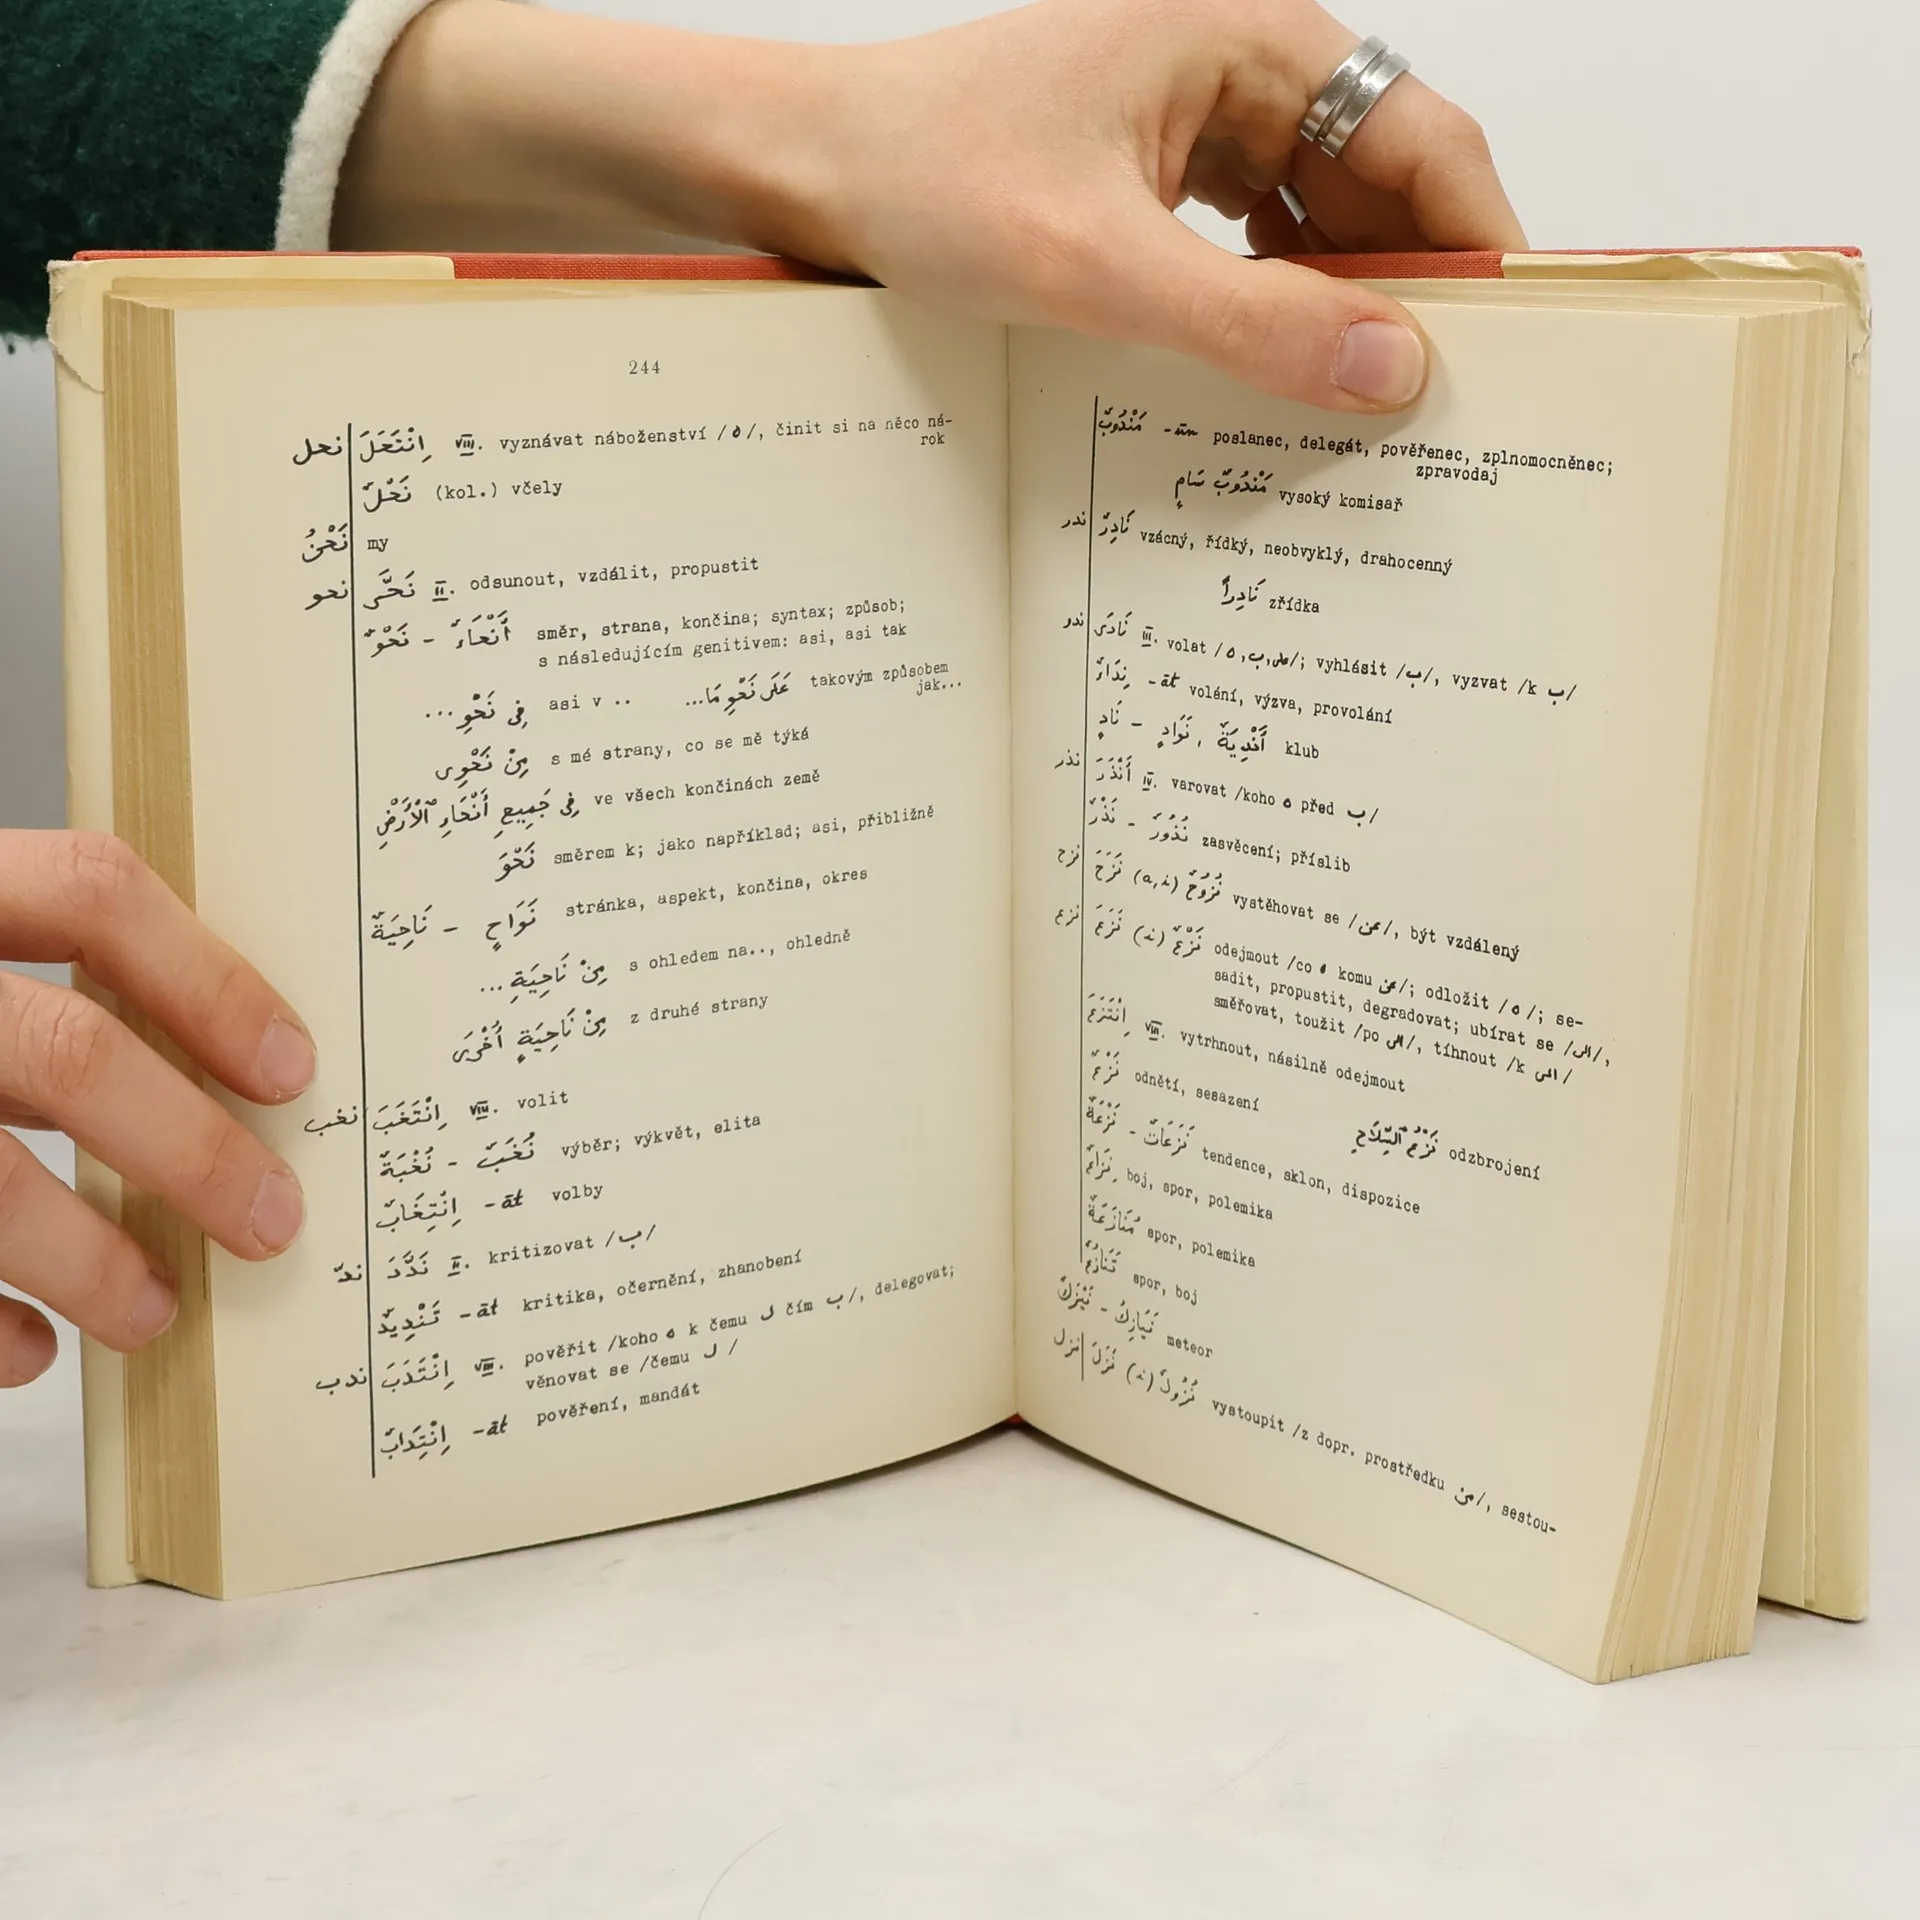 244
نحل اِنْتَحَلَ VIII. vyznávat náboženství /ه/, činit si na něco ná-
rok
نَحْلٌ (kol.) včely
نَحْنُ my
نحو نَحَّى II. odsunout, vzdálit, propustit
نَحْوٌ - أَنْحَاءٌ směr, strana, končina; syntax; způsob;
s následujícím genitivem: asi, asi tak
فِى نَحْوِ... asi v .. عَلَى نَحْوِ مَا... takovým způsobem
jak...
مِنْ نَحْوِى s mé strany, co se mě týká
فِى جَمِيعِ أَنْحَاءِ ٱلْأَرْضِ ve všech končinách země
نَحْوَ směrem k; jako například; asi, přibližně
نَاحِيَةٌ - نَوَاحٍ stránka, aspekt, končina, okres
مِنْ نَاحِيَةِ... s ohledem na.., ohledně
مِنْ نَاحِيَةٍ أُخْرَى z druhé strany
نخب اِنْتَخَبَ VIII. volit
نُخْبَةٌ - نُخَبٌ výběr; výkvět, elita
اِنْتِخَابٌ -āt volby
ندّ نَدَّدَ II. kritizovat /ب/
تَنْدِيدٌ -āt kritika, očernění, zhanobení
ندب اِنْتَدَبَ VIII. pověřit /koho ه k čemu ل čím ب/, delegovat;
věnovat se /čemu ل/
اِنْتِدَابٌ -āt pověření, mandát
مَنْدُوبٌ -ūn poslanec, delegát, pověřenec, zplnomocněnec;
zpravodaj
مَنْدُوبٌ سَامٍ vysoký komisař
ندر نَادِرٌ vzácný, řídký, neobvyklý, drahocenný
نَادِراً zřídka
ندو نَادَى III. volat /ه, ب, على/; vyhlásit /ب/, vyzvat /k ب/
نِدَاءٌ -āt volání, výzva, provolání
نَادٍ - نَوَادٍ, أَنْدِيَةٌ klub
نذر أَنْذَرَ IV. varovat /koho ه před ب/
نَذْرٌ - نُذُورٌ zasvěcení; příslib
نزح نَزَحَ (a,i) نُزُوحٌ vystěhovat se /عن/, být vzdálený
نزع نَزَعَ (i) نَزْعٌ odejmout /co ه komu من/; odložit /ه/; se-
sadit, propustit, degradovat; ubírat se /الى/,
směřovat, toužit /po الى/, tíhnout /k الى/
اِنْتَزَعَ VIII. vytrhnout, násilně odejmout
نَزْعٌ odnětí, sesazení
نَزْعُ ٱلسِّلَاحِ odzbrojení
نَزْعَةٌ - نَزَعَاتٌ tendence, sklon, dispozice
نِزَاعٌ boj, spor, polemika
مُنَازَعَةٌ spor, polemika
تَنَازُعٌ spor, boj
نَيْزَكٌ - نَيَازِكُ meteor
نزل نَزَلَ (i) نُزُولٌ vystoupit /z dopr. prostředku من/, sestou-